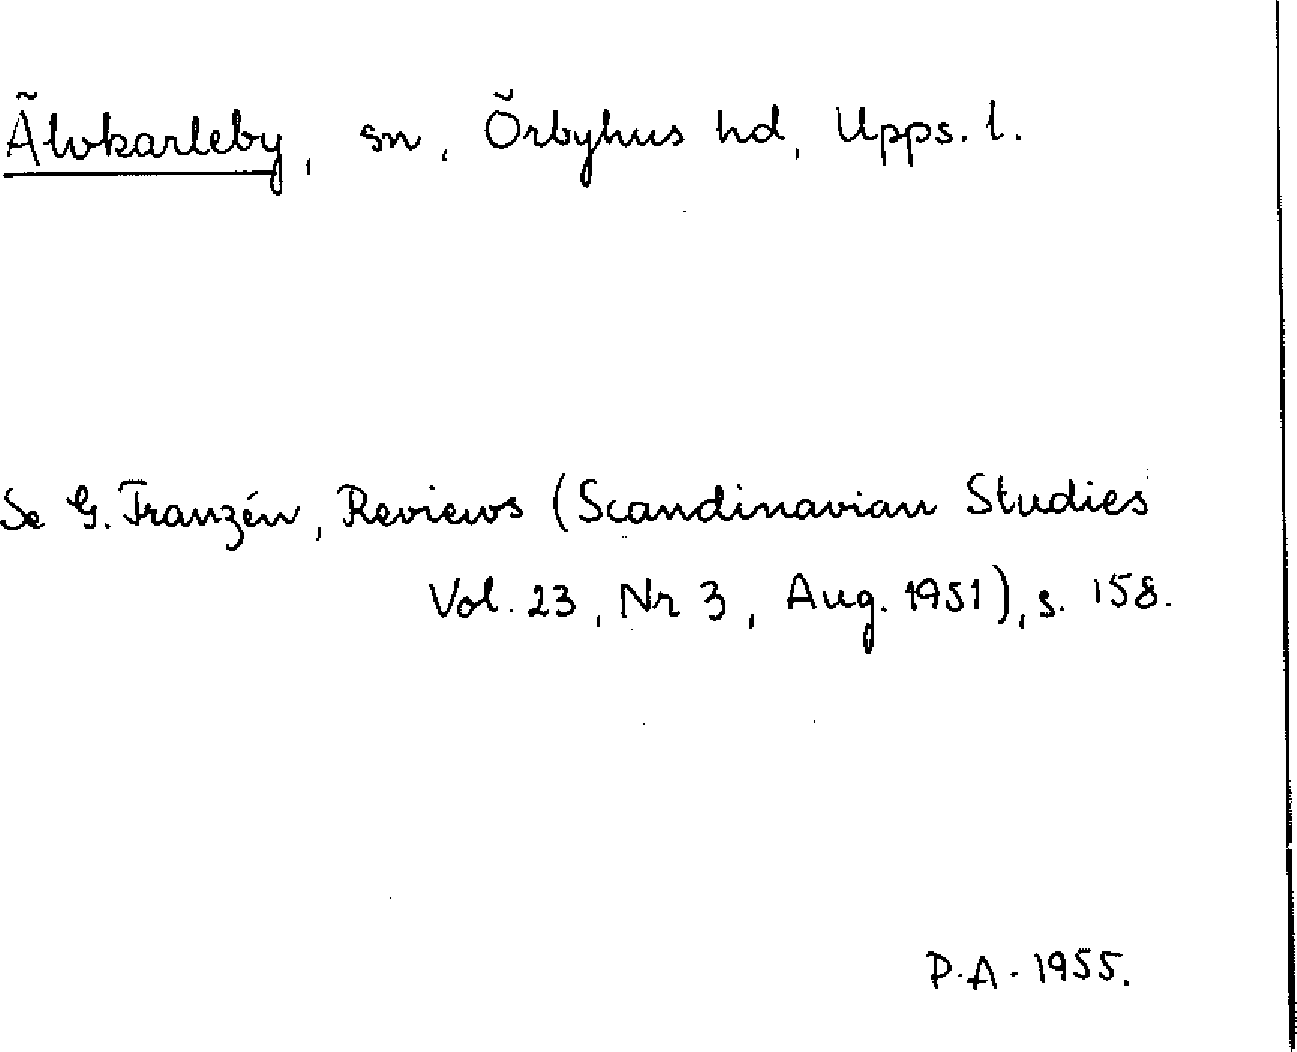 Älvkarleby, sn, Örbyhus hd, Upps. l.
Se G. Franzén, Reviews (Scandinavian Studies
Vol. 23, Nr 3, Aug. 1951), s. 158.
P.A. 1955.